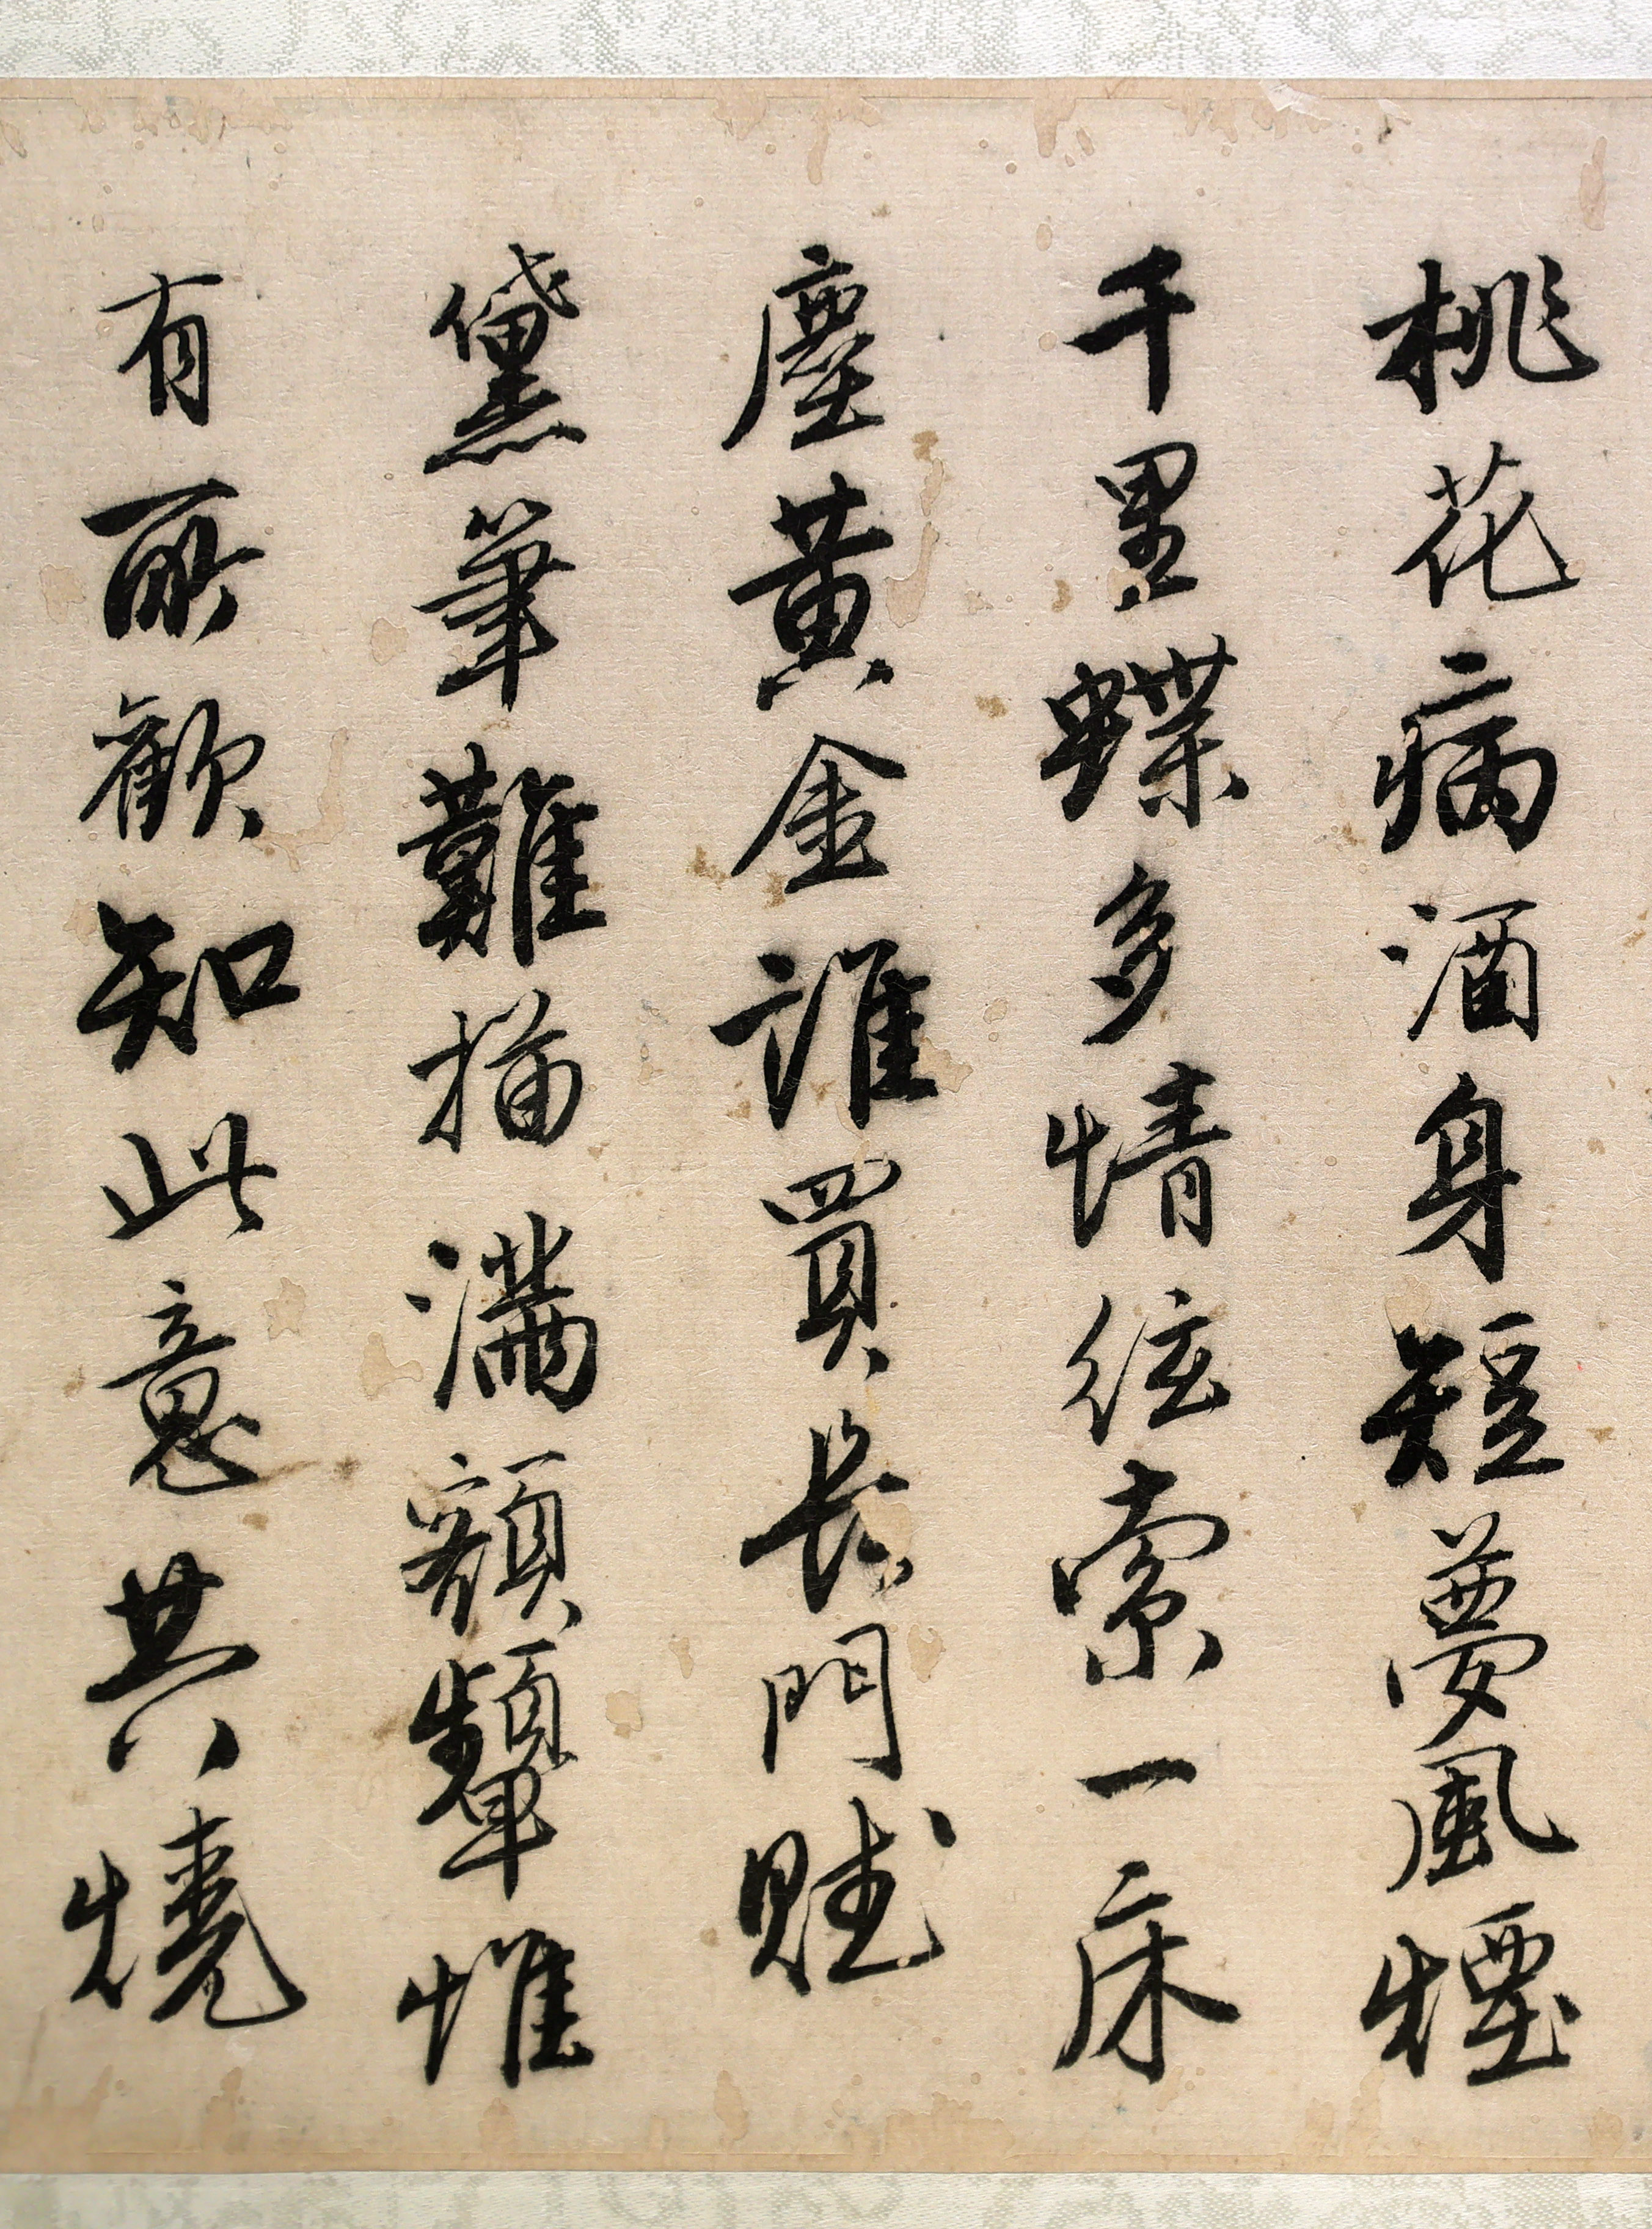 桃花病酒身短夢風煙
千里蝶多情絃索一床
塵黃金誰買長門賦
黛筆難描滿額顰惟
有所歡知此意共燒